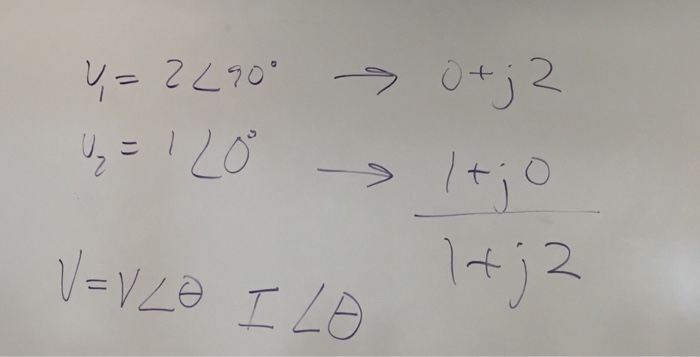 V₁ = 2∠90° → 0+j2
V₂ = 1∠0° → 1+j0
1+j2
V=V∠θ I∠θ